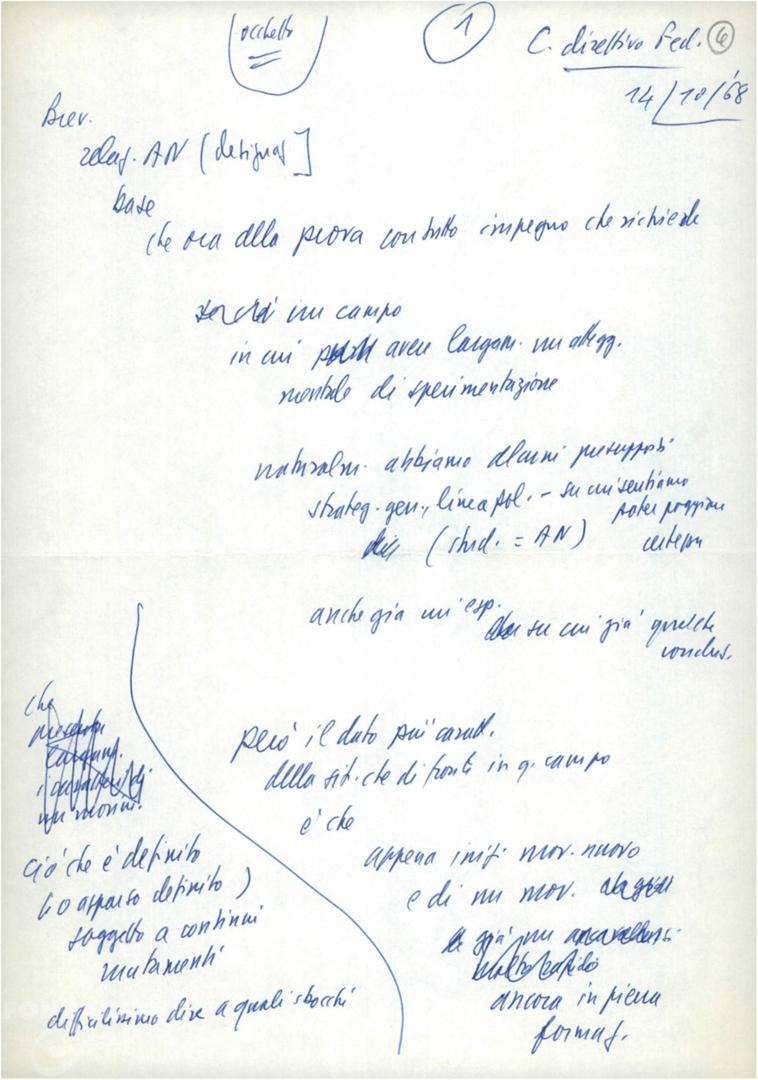 Occhetto
1
C. direttivo Fed. 6
14/10/'68
Brev.
relaz. AN (designaz]
base
che ora della prova con tutto impegno che richiede
in un campo
in cui avere largam. un attegg.
mentale di sperimentazione
naturalm. abbiamo alcuni presupposti
strateg. gen., linea pol. - su cui sentiamo
poter poggiare
(stud. = AN) certezza
anche già un'esp.
su cui già qualche
conclus.
che
presenta
largam.
i caratteri di
un movim.
però il dato più caratt.
della sit. che di fronte in q. campo
è che
appena iniz. mov. nuovo
e di un mov.
già un
molto rapido
ancora in piena
formaz.
ciò che è definito
(o apparso definito)
soggetto a continui
mutamenti
difficilissimo dire a quali sbocchi